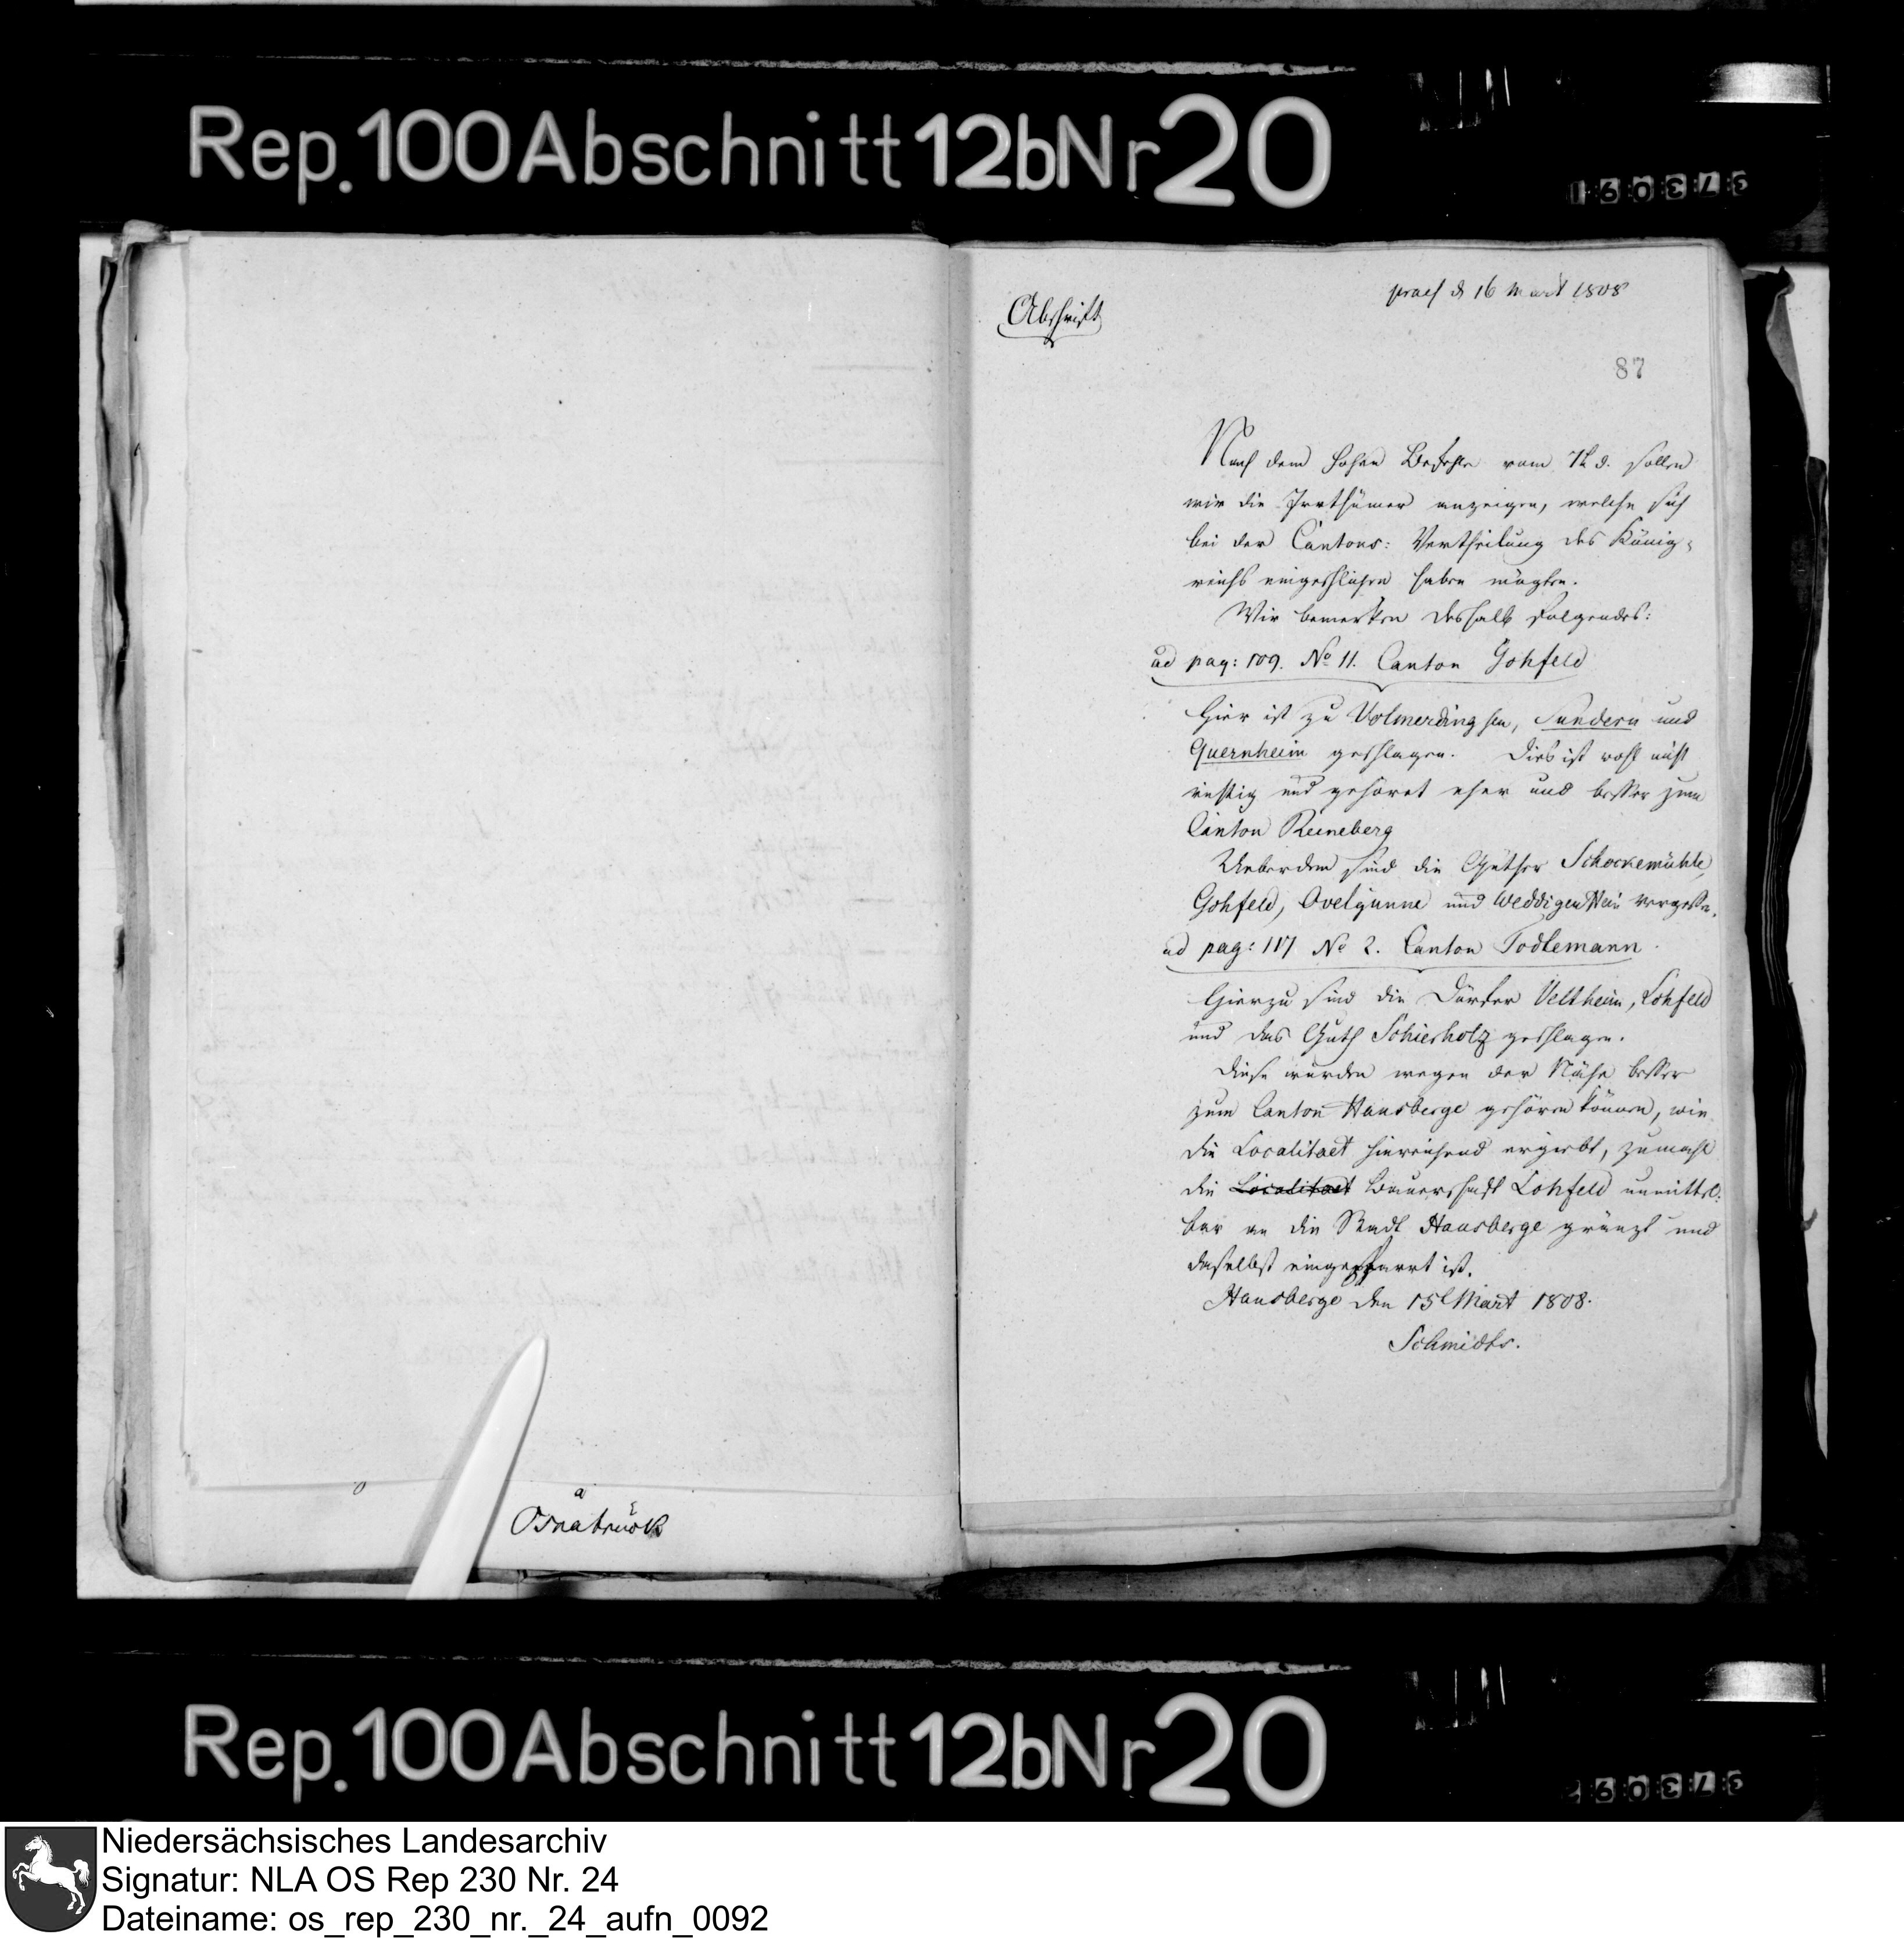 Rep. 100 Abschnitt 12b Nr 20
Abschrift
praes d 16 Mart 1808
87
Nach dem hohen Befehle vom 7t d. sollen
wir die Irrthümer anzeigen, welche sich
bei der Cantons: Vertheilung des König-
reichs eingeschlichen haben mögten.
Wir bemerken deshalb Folgendes:
ad pag: 109. No 11. Canton Gohfeld
Hier ist zu Volmerdingsen, Sundern und
Quernheim geschlagen. Dies ist wohl nicht
richtig und gehöret eher und besser zum
Canton Reineberg
Ueberdem sind die Güther Schockemühle,
Gohfeld, Ovelgünne und Weddigenstein vergessen.
ad pag: 117 No 2. Canton Todtemann.
Hierzu sind die Dörfer Veltheim, Lohfeld
und das Guth Schierholz geschlagen.
Diese würden wegen der Nähe besser
zum Canton Hausberge gehören können, wie
die Localitaet hinreichend ergiebt, zumahl
die Localitaet Bauerschaft Lohfeld unmittel:
bar an die Stadt Hausberge gränzt und
daselbst eingepfarrt ist.
Hausberge den 15t Mart 1808.
Schmidts.
a
Osnabrück
Rep. 100 Abschnitt 12b Nr 20
Niedersächsisches Landesarchiv
Signatur: NLA OS Rep 230 Nr. 24
Dateiname: os_rep_230_nr._24_aufn_0092